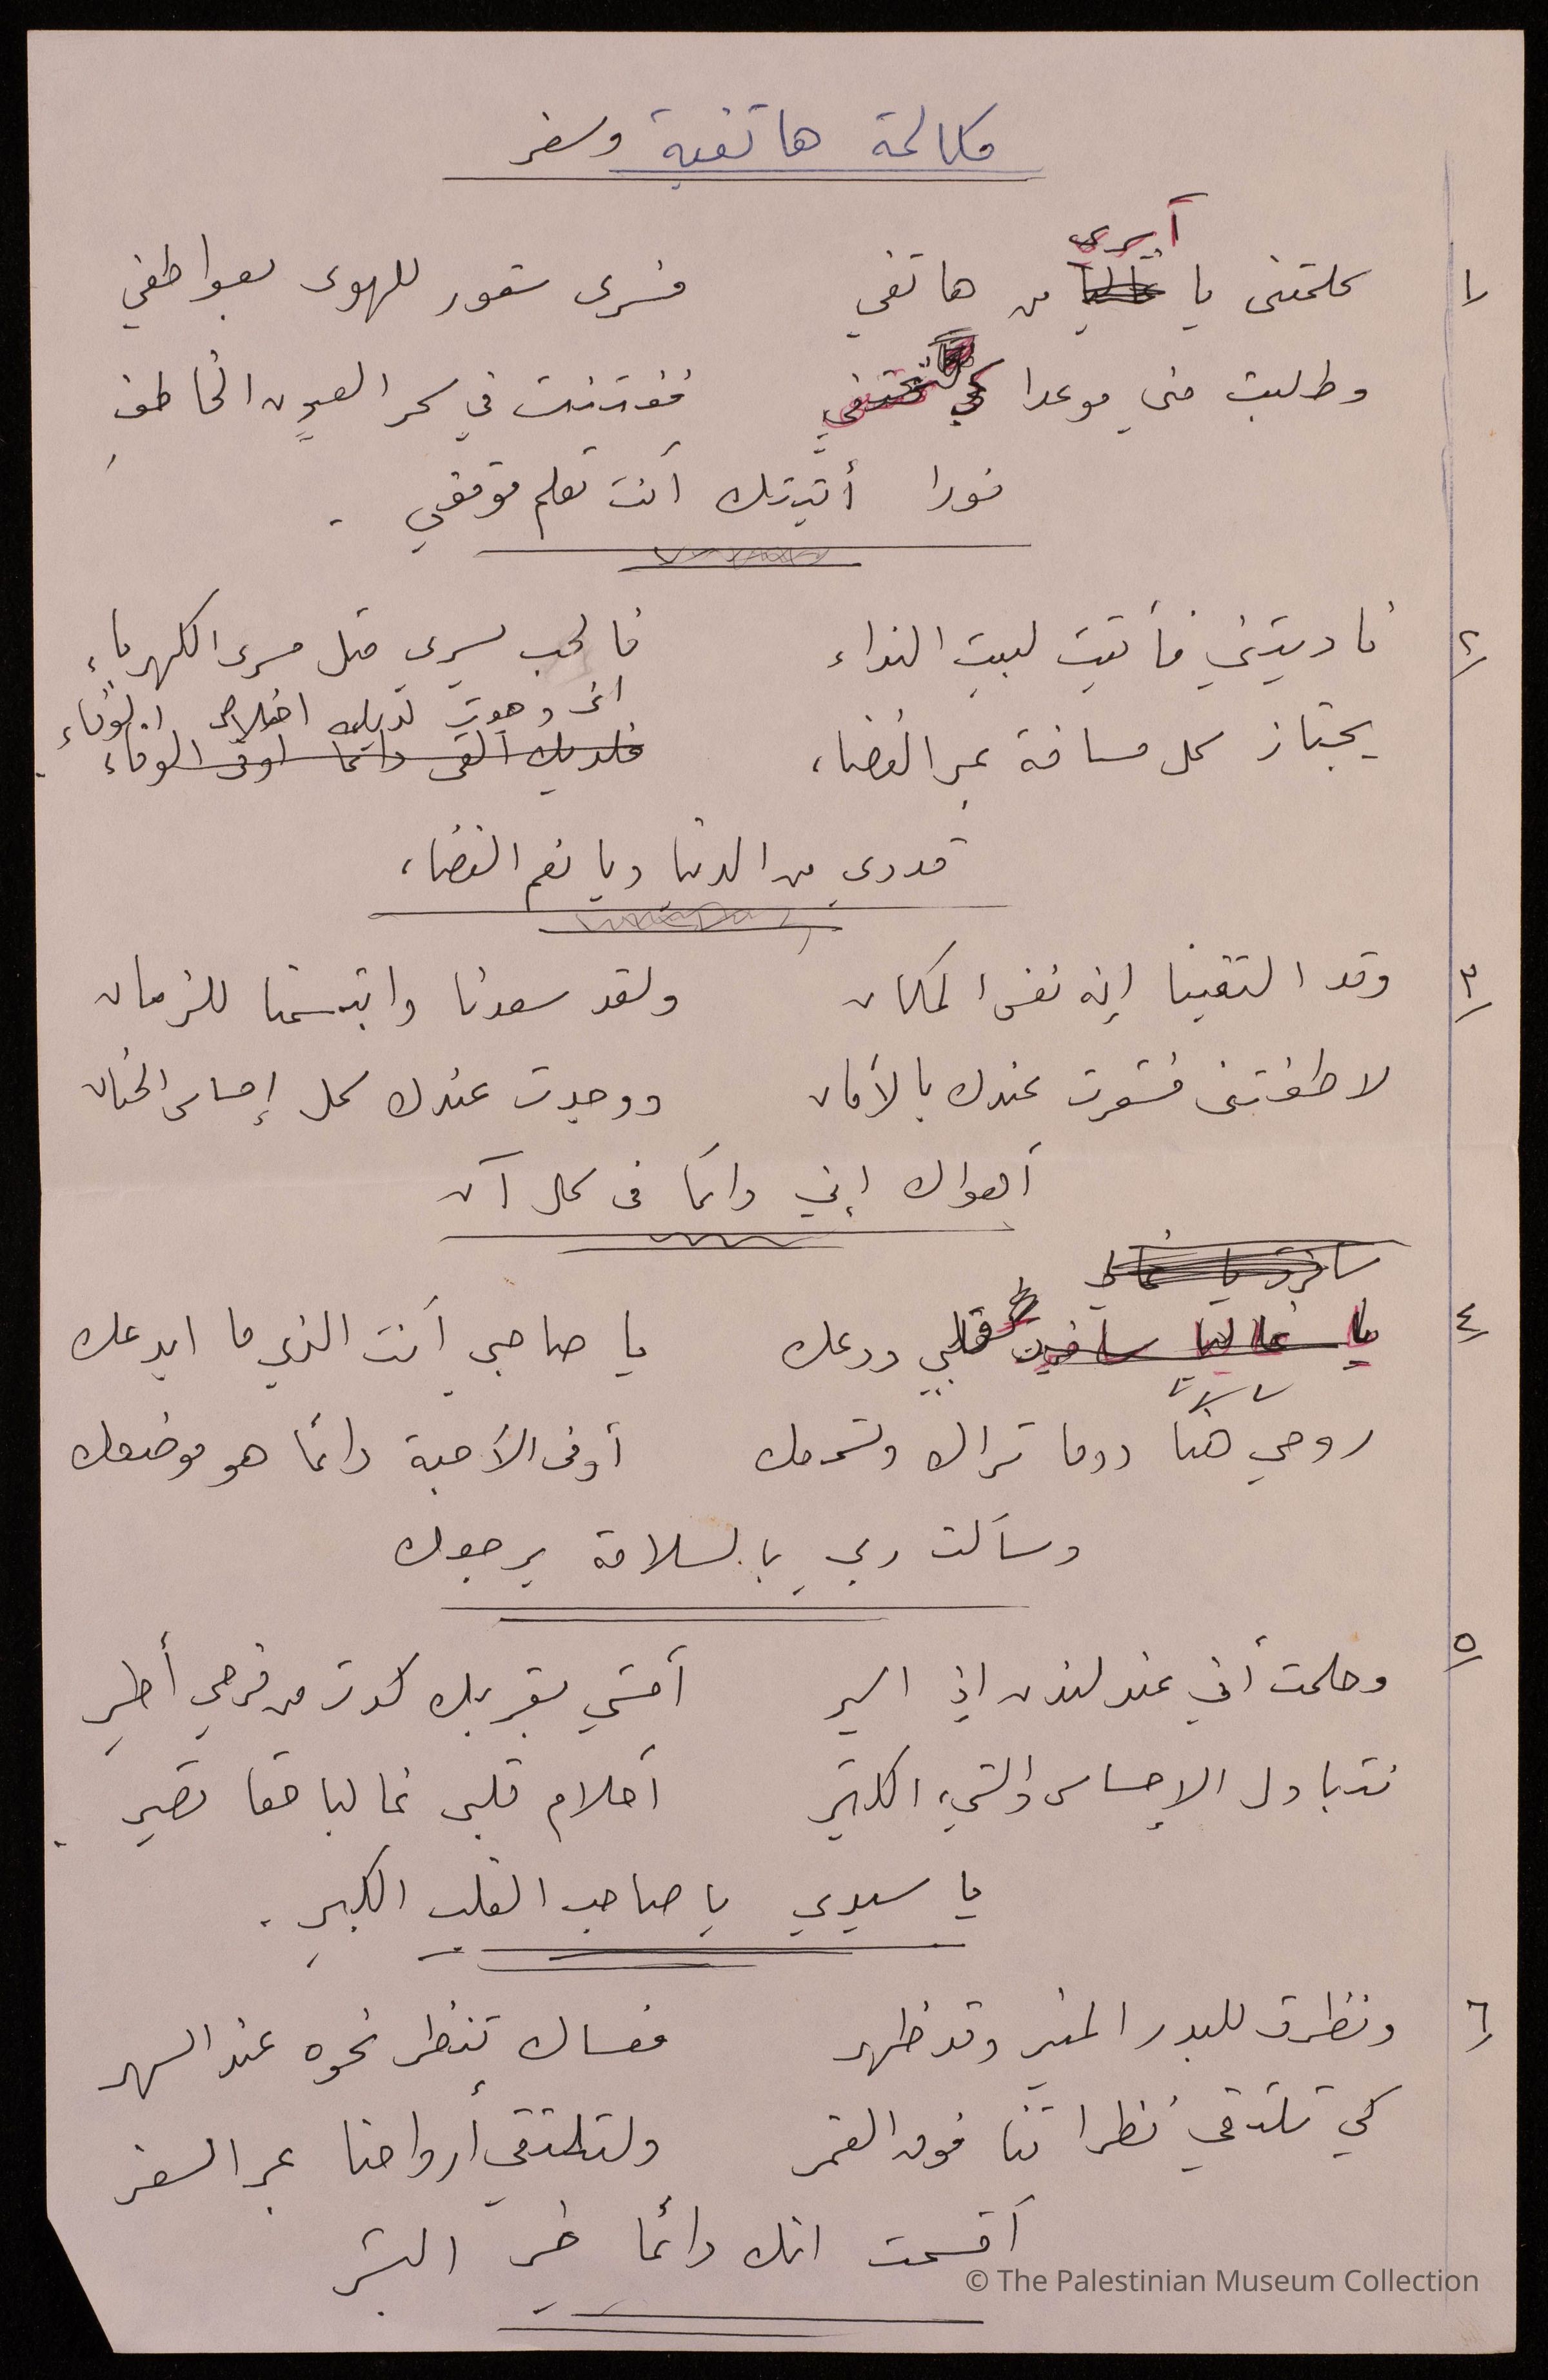 مكالمة هاتفية وسفر
آسري
١/ كلمتني يا غاليا من هاتفي فسرى شعور للهوى بعواطفي
وطلبت مني موعدا كي نختفي ففتنت في سحر العيون الخاطفِ
فورا أتيتك أنت تعلم موقفي .
٢/ ناديتني فأتيت لبيت النداء فالحب يسري مثل مسرى الكهرباء
اني وجدت لديك اخلاص الوفاء
يجتاز كل مسافة عبر الفضاء فلديك القى دائما اوفى الوفاء .
قدري من الدنيا ويا نعم القضاء
٣/ وقد التقينا إنه نفس المكان ولقد سعدنا وابتسمنا للزمان
لاطفتني فشعرت عندك بالأمان ووجدت عندك كل إحساس الحنان
أهواك إني دائما في كل آن
سافرت يا غالي
٤/ يا غاليا سافرت قلبي ودعك يا صاحبي أنت الذي ما ابدعك
روحي هنا دوما تراك وتسمعك أوفى الأحبة دائما هو موضعك
وسألت ربي بالسلامة يرجعك
٥/ وحلمت أني عند لندن إذ اسير أمشي بقربك كدت من فرحي أطير
نتبادل الإحساس والشيء الكثير أحلام قلبي غالبا حقا تصير .
يا سيدي يا صاحب القلب الكبير .
٦/ ونظرت للبدر المنير وقد ظهر فعساك تنظر نحوه عند السهر
كي تلتقي نظراتنا فوق القمر ولتلتقي أرواحنا عبر السفر
أقسمت انك دائما خير البشر
© The Palestinian Museum Collection